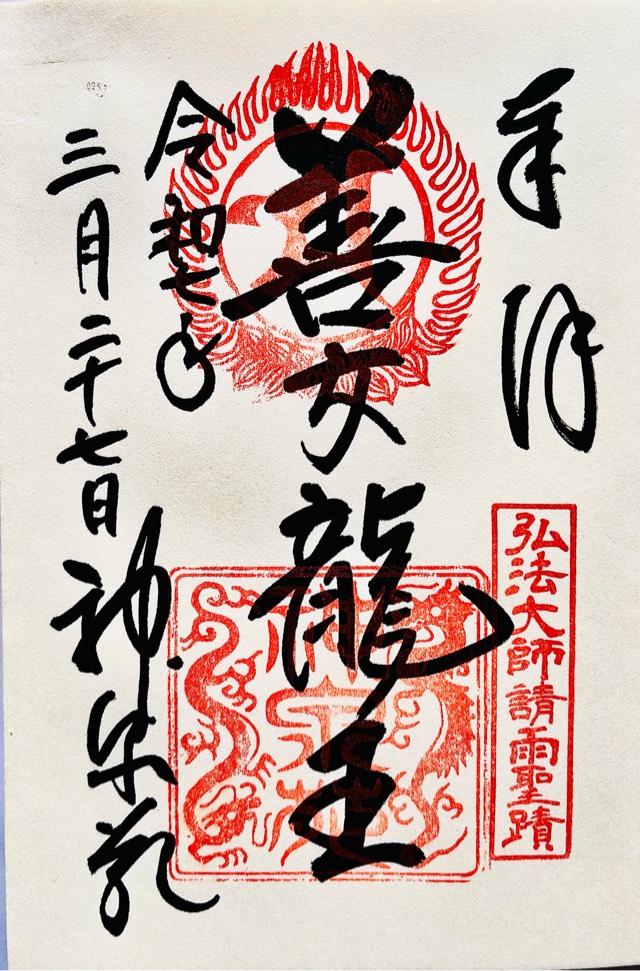 奉拝
弘法大師請雨聖蹟
善女龍王
令和七年
三月二十七日
神泉苑